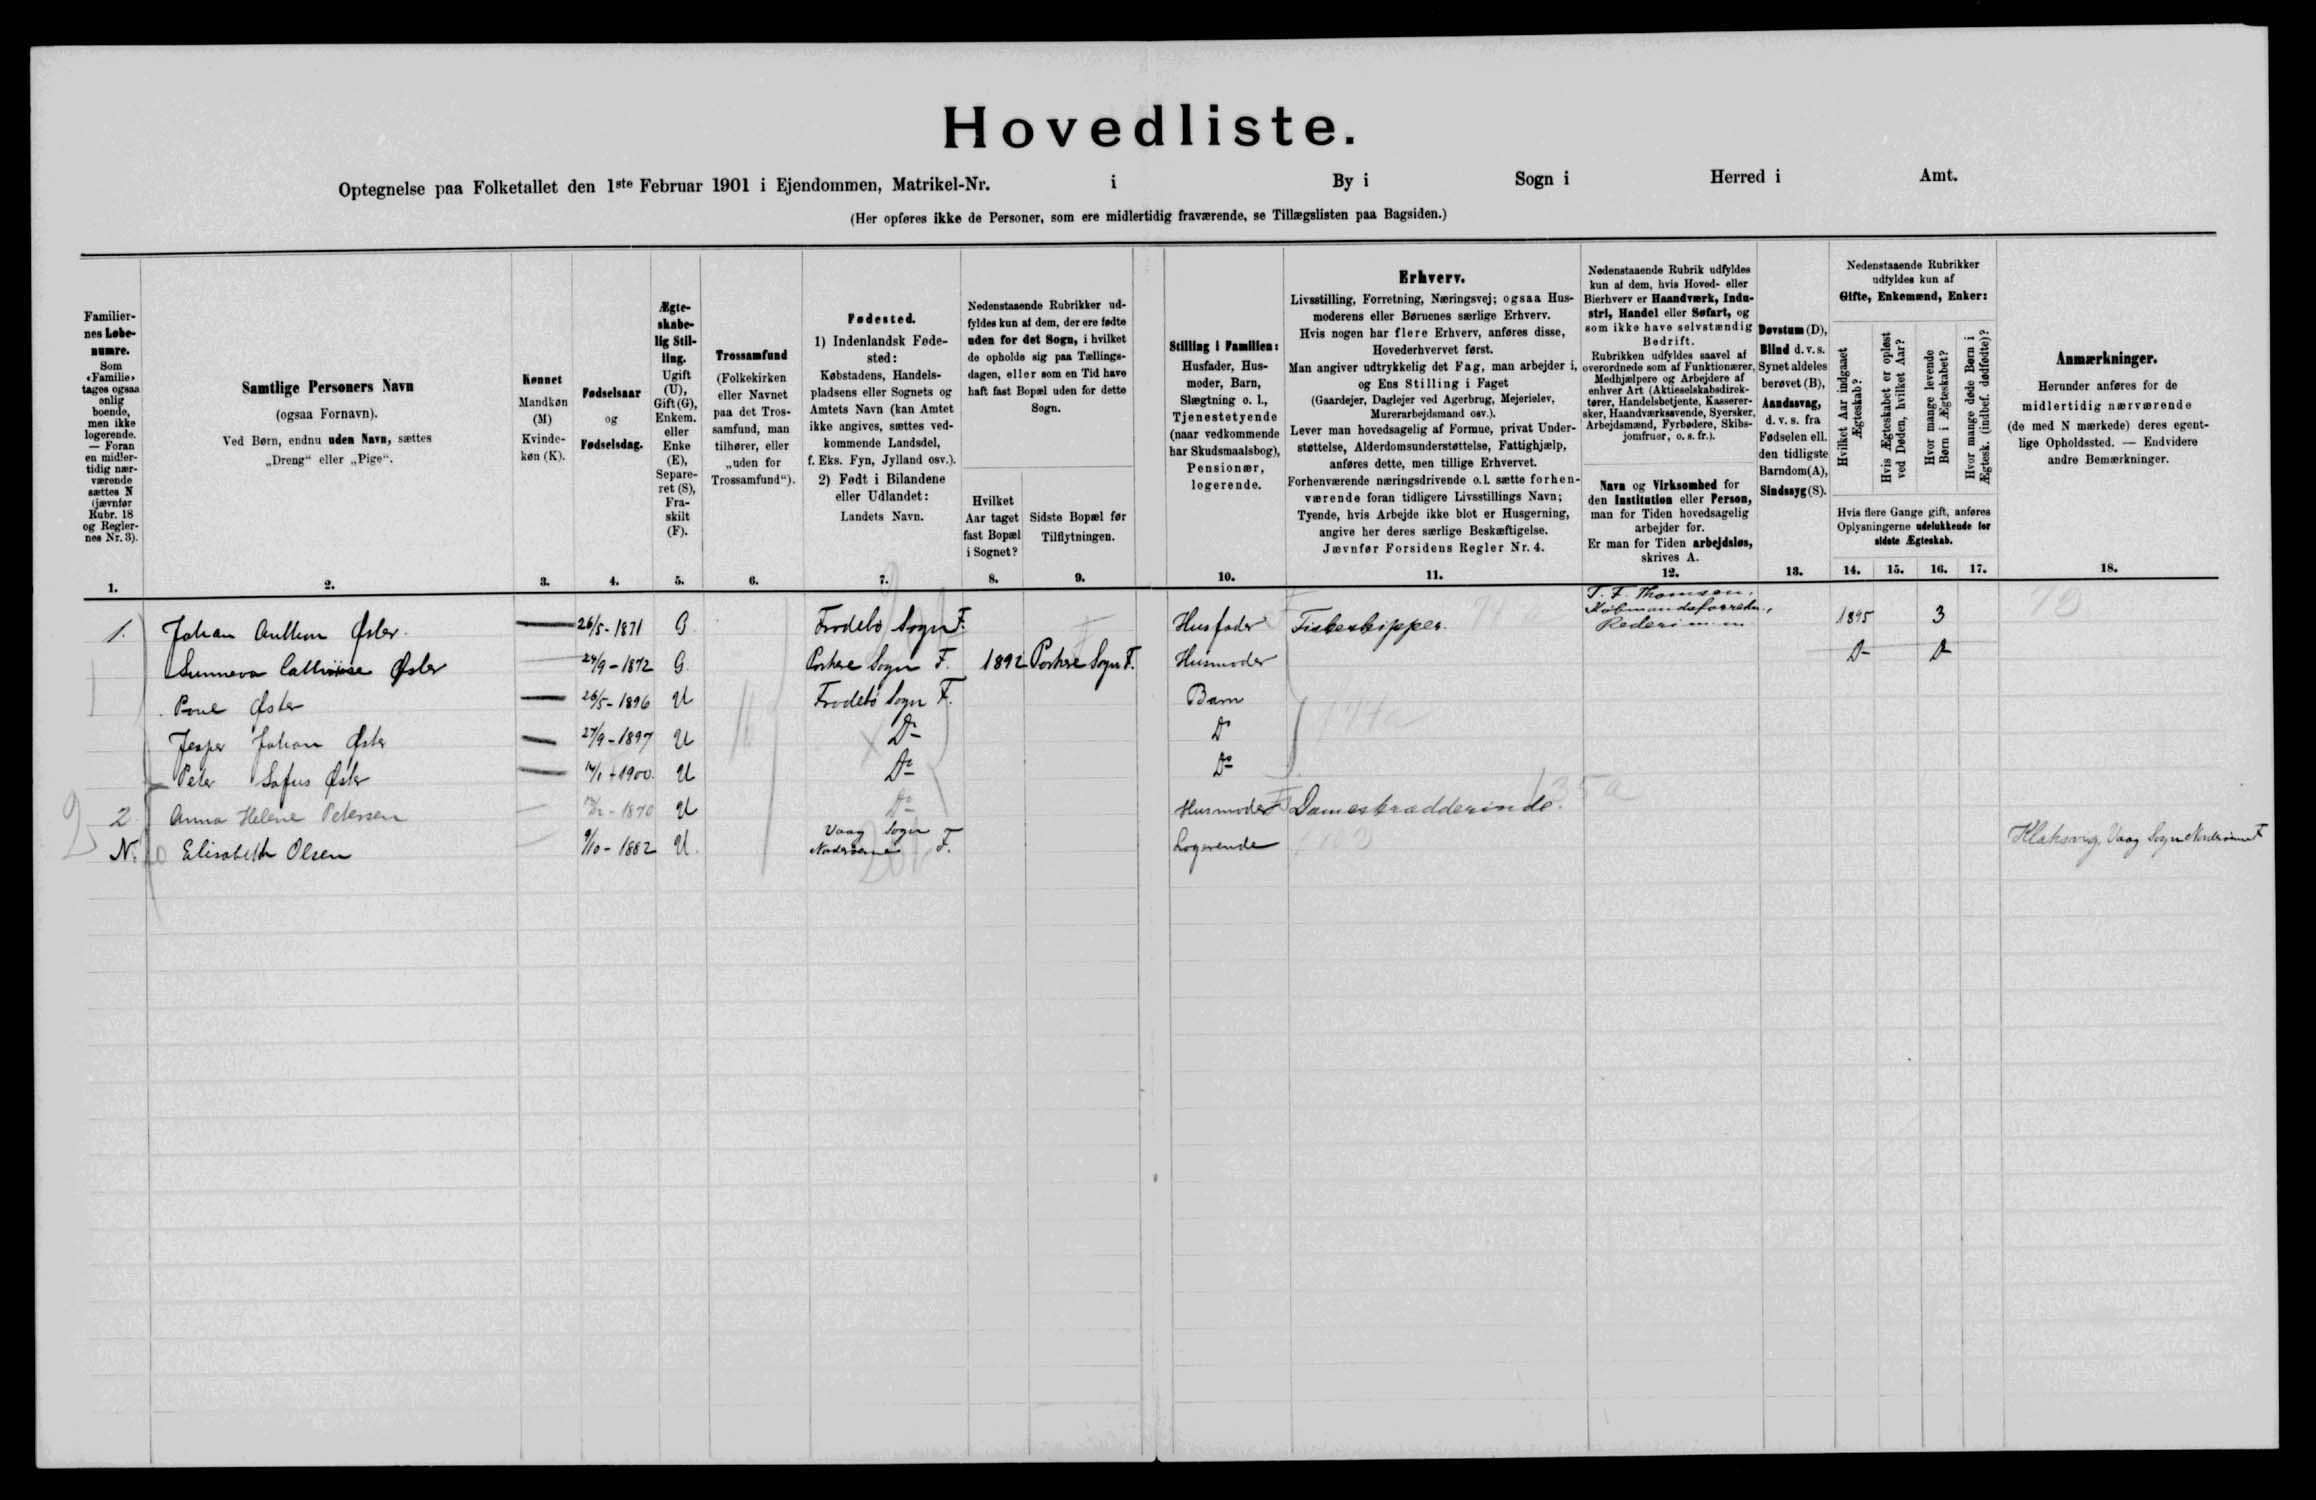 Hovedliste.
Optegnelse paa Folketallet den 1ste Februar 1901 i Ejendommen, Matrikel-Nr. i By i Sogn i Herred i Amt.
(Her opføres ikke de Personer, som ere midlertidig fraværende, se Tillægslisten paa Bagsiden.)
Familier-
nes Løbe-
numre.
Som
«Familie»
tages ogsaa
enlig
boende,
men ikke
logerende.
— Foran
en midler-
tidig nær-
værende
sættes N
(jævnfør
Rubr. 18
og Regler-
nes Nr. 3).
1.
Samtlige Personers Navn
(ogsaa Fornavn).
Ved Børn, endnu uden Navn, sættes
„Dreng“ eller „Pige“.
2.
Kønnet
Mandkøn
(M)
Kvinde-
køn (K).
3.
Fødselsaar
og
Fødselsdag.
4.
Ægte-
skabe-
lig Stil-
ling.
Ugift
(U),
Gift (G),
Enkem.
eller
Enke
(E),
Separe-
ret (S),
Fra-
skilt
(F).
5.
Trossamfund
(Folkekirken
eller Navnet
paa det Tros-
samfund, man
tilhører, eller
„uden for
Trossamfund“).
6.
Fødested.
1) Indenlandsk Føde-
sted:
Købstadens, Handels-
pladsens eller Sognets og
Amtets Navn (kan Amtet
ikke angives, sættes ved-
kommende Landsdel,
f. Eks. Fyn, Jylland osv.).
2) Født i Bilandene
eller Udlandet:
Landets Navn.
7.
Nedenstaaende Rubrikker ud-
fyldes kun af dem, der ere fødte
uden for det Sogn, i hvilket
de opholde sig paa Tællings-
dagen, eller som en Tid have
haft fast Bopæl uden for dette
Sogn.
Hvilket
Aar taget
fast Bopæl
i Sognet?
8.
Sidste Bopæl før
Tilflytningen.
9.
Stilling i Familien:
Husfader, Hus-
moder, Barn,
Slægtning o. l.,
Tjenestetyende
(naar vedkommende
har Skudsmaalsbog),
Pensionær,
logerende.
10.
Erhverv.
Livsstilling, Forretning, Næringsvej; ogsaa Hus-
moderens eller Børnenes særlige Erhverv.
Hvis nogen har flere Erhverv, anføres disse,
Hovederhvervet først.
Man angiver udtrykkelig det Fag, man arbejder i,
og Ens Stilling i Faget
(Gaardejer, Daglejer ved Agerbrug, Mejerielev,
Murerarbejdsmand osv.).
Lever man hovedsagelig af Formue, privat Under-
støttelse, Alderdomsunderstøttelse, Fattighjælp,
anføres dette, men tillige Erhvervet.
Forhenværende næringsdrivende o. l. sætte forhen-
værende foran tidligere Livsstillings Navn;
Tyende, hvis Arbejde ikke blot er Husgerning,
angive her deres særlige Beskæftigelse.
Jævnfør Forsidens Regler Nr. 4.
11.
Nedenstaaende Rubrik udfyldes
kun af dem, hvis Hoved- eller
Bierhverv er Haandværk, Indu-
stri, Handel eller Søfart, og
som ikke have selvstændig
Bedrift.
Rubrikken udfyldes saavel af
overordnede som af Funktionærer,
Medhjælpere og Arbejdere af
enhver Art (Aktieselskabsdirek-
tører, Handelsbetjente, Kasserer-
sker, Haandværkssvende, Syersker,
Arbejdsmænd, Fyrbødere, Skibs-
jomfruer, o. s. fr.).
Navn og Virksomhed for
den Institution eller Person,
man for Tiden hovedsagelig
arbejder for.
Er man for Tiden arbejdsløs,
skrives A.
12.
Døvstum (D),
Blind d. v. s.
Synet aldeles
berøvet (B),
Aandssvag,
d. v. s. fra
Fødselen ell.
den tidligste
Barndom (A),
Sindssyg (S).
13.
Nedenstaaende Rubrikker
udfyldes kun af
Gifte, Enkemænd, Enker:
Hvilket Aar indgaaet
Ægteskab?
Hvis Ægteskabet er opløst
ved Døden, hvilket Aar?
Hvor mange levende
Børn i Ægteskabet?
Hvor mange døde Børn i
Ægtesk. (indbef. dødfødte)?
Hvis flere Gange gift, anføres
Oplysningerne udelukkende for
sidste Ægteskab.
14. 15. 16. 17.
Anmærkninger.
Herunder anføres for de
midlertidig nærværende
(de med N mærkede) deres egent-
lige Opholdssted. — Endvidere
andre Bemærkninger.
18.
T. F. Thomsen,
Købmandsforretn.,
1. Johan Anthon Øster. 26/5-1871 G Frodebø Sogn F. Husfader Fiskeskipper. Rederi 1895 3
Sunneva Øster 24/9-1872 G. Porkere Sogn F. 1892 Porkere Sogn F. Husmoder Do Do
Poul Øster 26/5-1896 U Frodebø Sogn F. Barn
Jesper Johan Øster 27/9-1897 U Do Do
Peter Sofus Øster 14/1-1900. U Do Do
2. Anna Helene Petersen 1870 U Do Husmoder Dameskrædderinde.
Vaag Sogn
N. Elisabeth Olsen 9/10-1882 U. Norderøerne F. Logerende Klaksvig, Vaag Sogn F